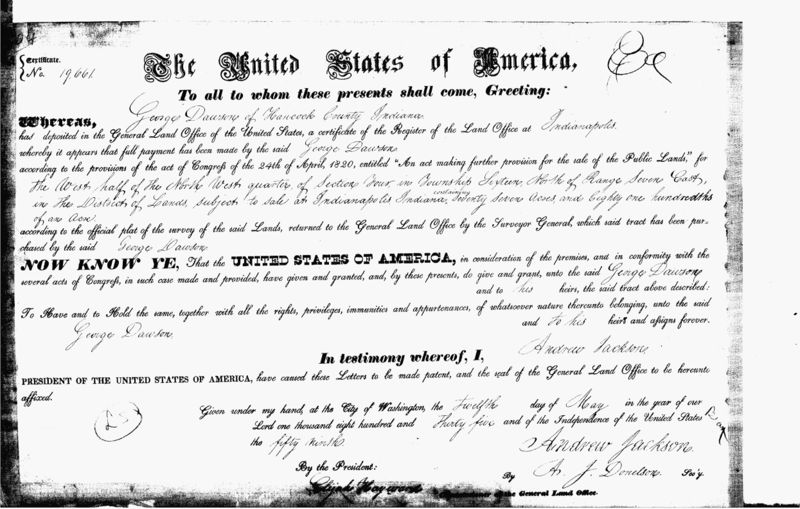 Certificate.
No. 19661
The United States of America,
To all to whom these presents shall come, Greeting:
Whereas, George Dawson of Hancock County Indiana
has deposited in the General Land Office of the United States, a certificate of the Register of the Land Office at Indianapolis
whereby it appears that full payment has been made by the said George Dawson
according to the provisions of the act of Congress of the 24th of April, 1820, entitled "An act making further provision for the sale of the Public Lands," for
the West half of the North West quarter, of Section Four, in Township Sixteen, North of Range Seven East,
in the District of Lands, subject to sale at Indianapolis Indiana, containing Seventy Seven Acres, and Eighty one hundredths
of an Acre
according to the official plat of the survey of the said Lands, returned to the General Land Office by the Surveyor General, which said tract has been pur-
chased by the said George Dawson
NOW KNOW YE, That the UNITED STATES OF AMERICA, in consideration of the premises, and in conformity with the
several acts of Congress, in such case made and provided, have given and granted, and, by these presents, do give and grant, unto the said George Dawson
and to his heirs, the said tract above described:
To Have and to Hold the same, together with all the rights, privileges, immunities and appurtenances, of whatsoever nature thereunto belonging, unto the said
George Dawson and to his heirs and assigns forever.
In testimony whereof, I, Andrew Jackson
PRESIDENT OF THE UNITED STATES OF AMERICA, have caused these Letters to be made patent, and the seal of the General Land Office to be hereunto
affixed.
Given under my hand, at the City of Washington, the Twelfth day of May in the year of our
Lord one thousand eight hundred and Thirty five and of the Independence of the United States
the fifty ninth
Andrew Jackson
By the President:
By A. J. Donelson Sec'y.
Elijah Hayward Commissioner of the General Land Office